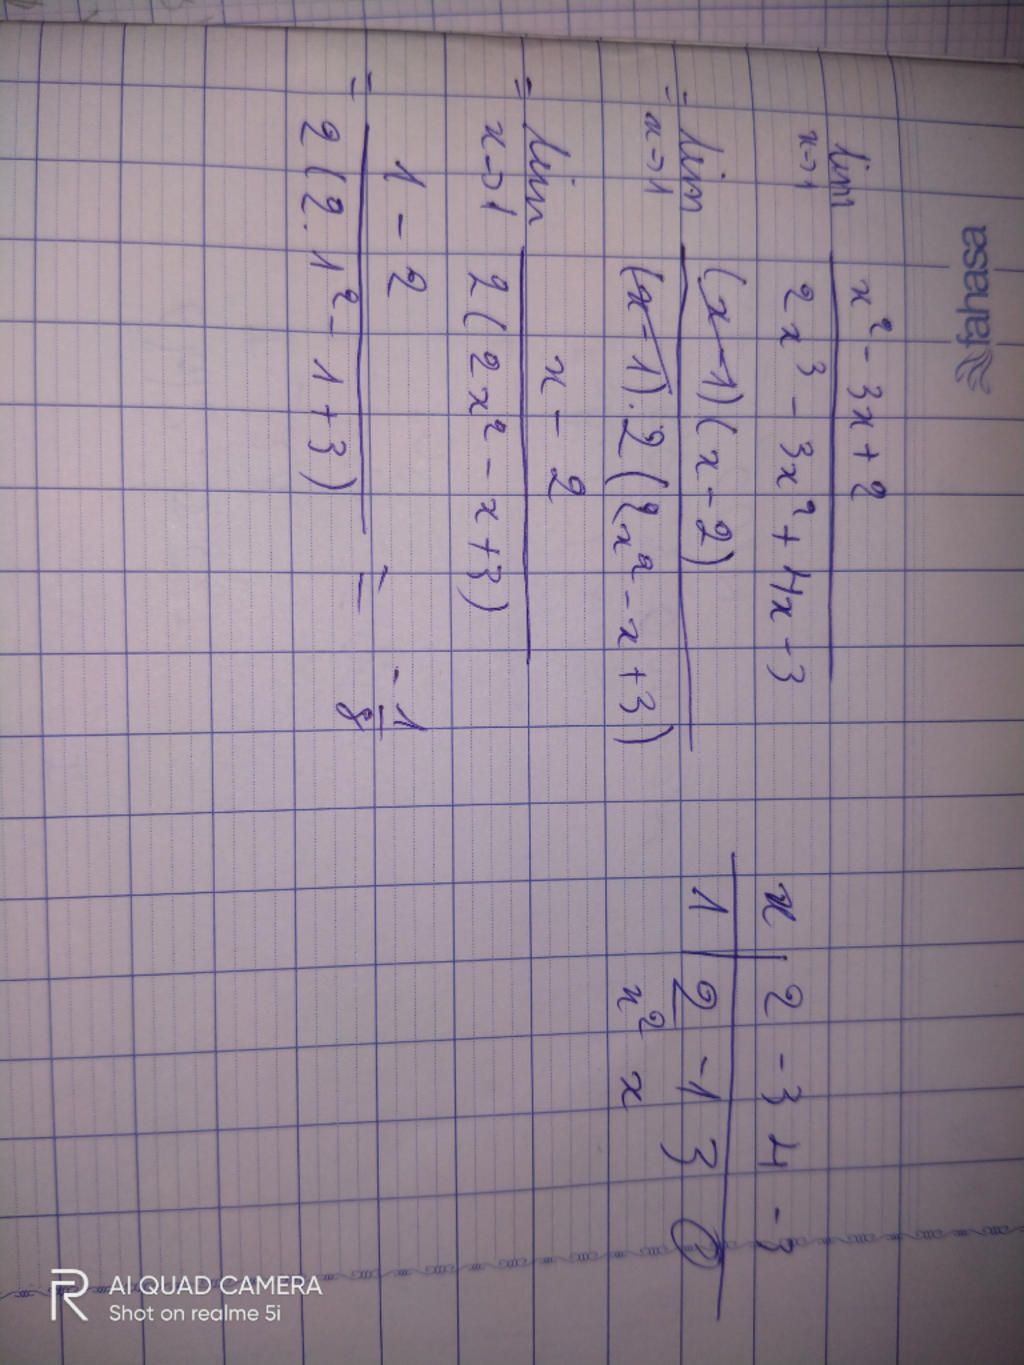 fahasa
lim x→1 (x² - 3x + 2) / (2x³ - 3x² + 4x - 3)
= lim x→1 (x - 1)(x - 2) / (x - 1).2(2x² - x + 3)
= lim x→1 (x - 2) / 2(2x² - x + 3)
= (1 - 2) / 2(2.1² - 1 + 3) = -1/8
x | 2 -3 4 -3
1 | 2 -1 3 0
x² x
AI QUAD CAMERA
Shot on realme 5i